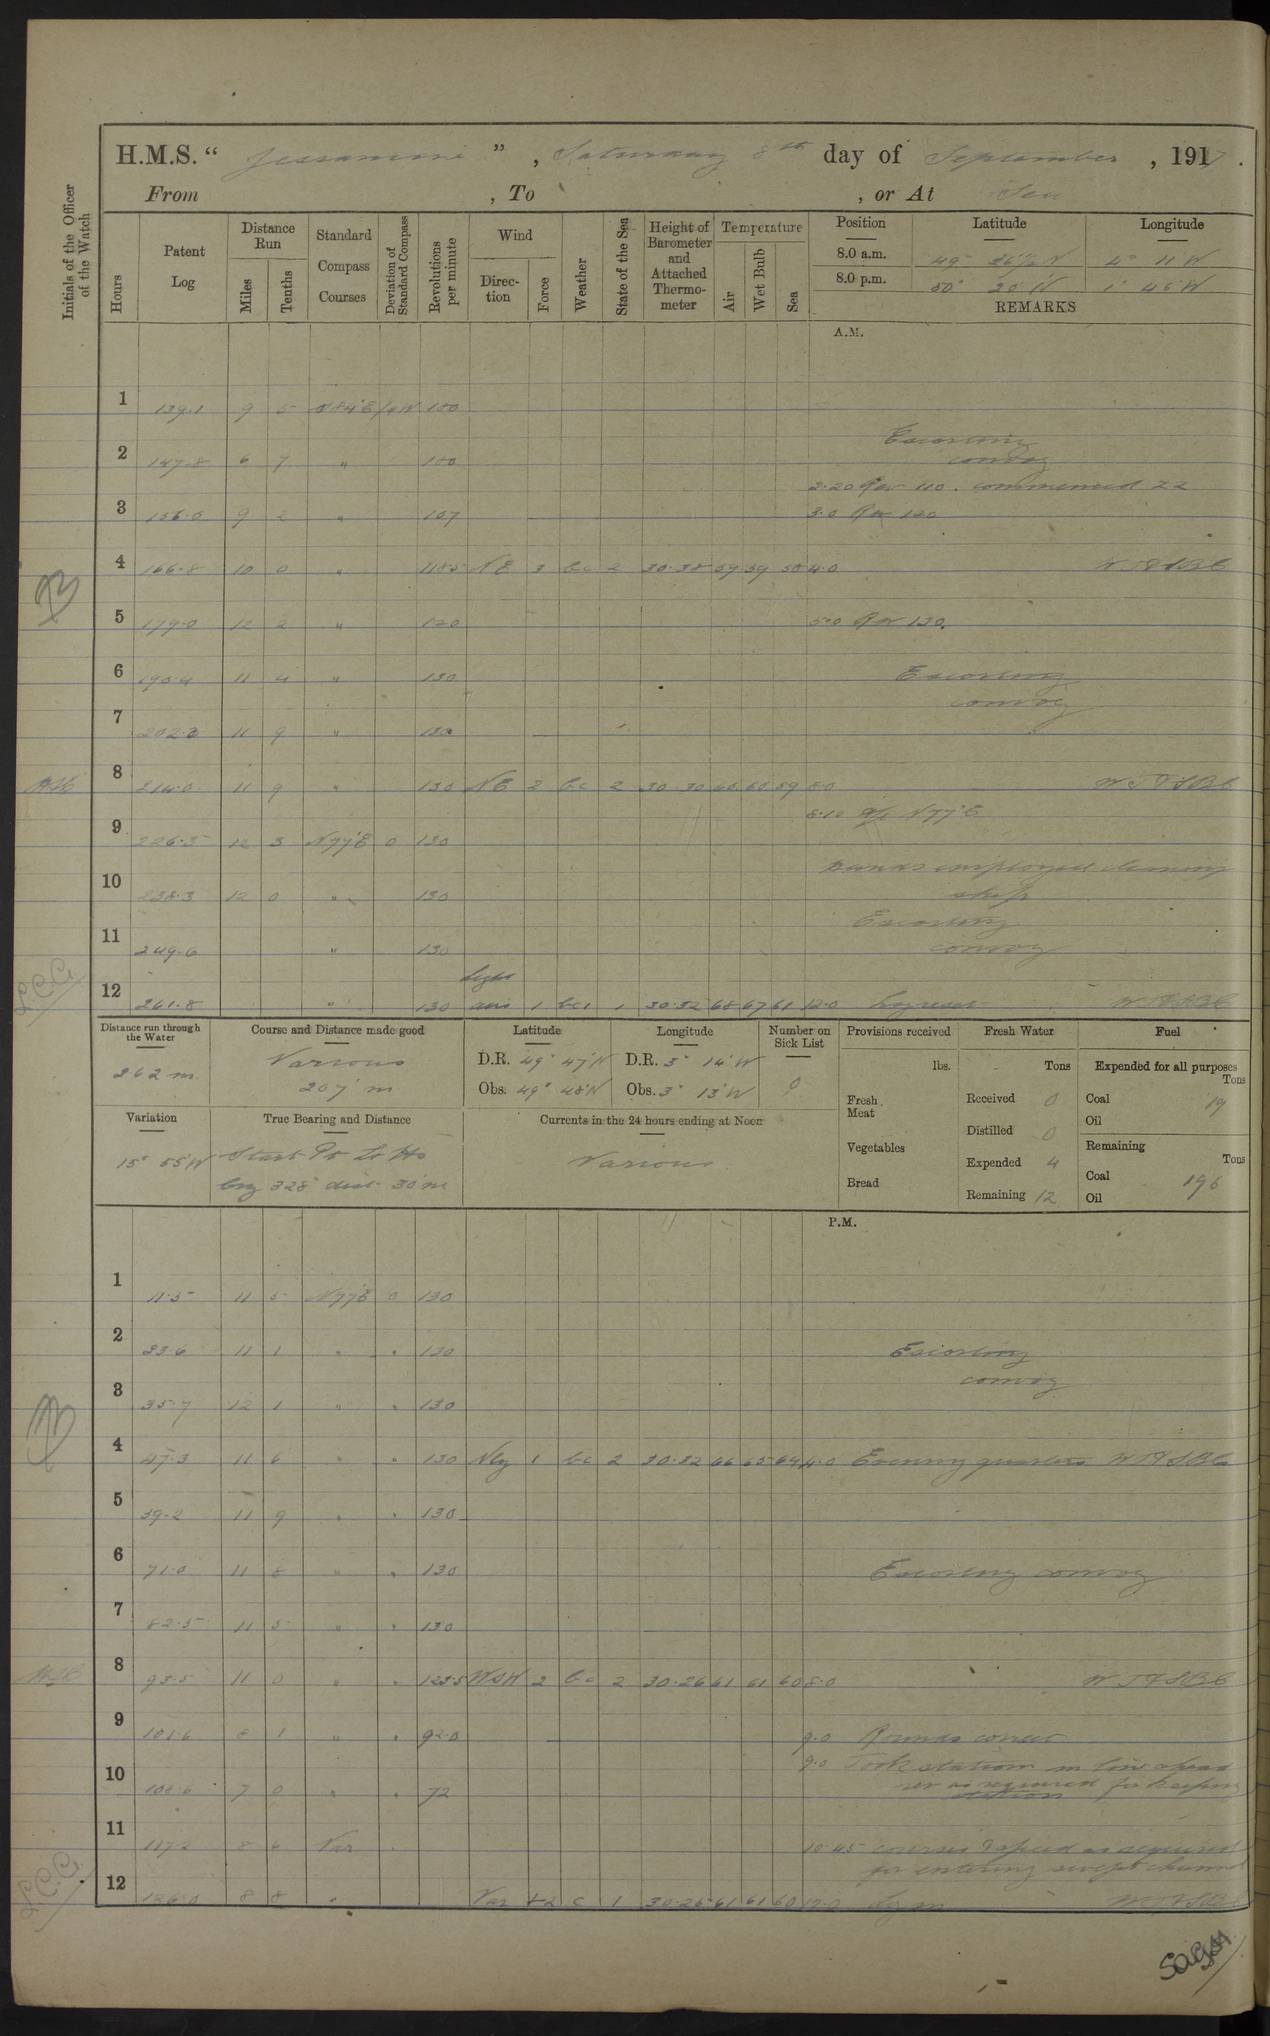 H.M.S. " Jessamine " , Saturday 8th day of September , 1917 .
From , To , or At Sea
Initials of the Officer of the Watch
Hours
Patent Log
Distance Run
Miles
Tenths
Standard Compass Courses
Deviation of Standard Compass
Revolutions per minute
Wind
Direction
Force
Weather
State of the Sea
Height of Barometer and Attached Thermometer
Temperature
Air
Wet Bulb
Sea
Position Latitude Longitude
8.0 a.m. 49° 36½ N 4° 11 W
8.0 p.m. 50° 20' N 1° 46' W
REMARKS
A.M.
1 139.1 9 5 N84°E 100
Escorting
2 147.8 6 7 " 100
convoy
2.20 Rev 110. commenced ZZ
3 156.0 9 2 " 107 3.0 Rev 120
4 166.8 10 0 " 118.5 NE 3 bc 2 30.38 59 59 58 4.0
5 179.0 12 2 " 120 5.0 Rev 130.
6 190.4 11 4 " 130 Escorting
convoy
7 202.3 11 9 " 130
8 214.0 11 9 " 130 NE 2 bc 2 30.30 60 60 59 8.0 WTFSBC
8.10 a/c N77°E
9 226.3 12 3 N77E 0 130
Hands employed cleaning
10 238.3 12 0 " 130 ship
Escorting
11 249.6 " 130 convoy
light
L.C.G. 12 261.8 " 130 airs 1 bc 1 30.32 68 67 61 12.0 Log reset
Distance run through the Water
262 m.
Course and Distance made good
Various
207' m
Latitude
D.R. 49° 47' N
Obs. 49° 48' N
Longitude
D.R. 3° 14' W
Obs. 3° 13' W
Number on Sick List
0
Provisions received
lbs.
Fresh Meat
Vegetables
Bread
Fresh Water
Tons
Received 0
Distilled 0
Expended 4
Remaining 12
Fuel
Expended for all purposes
Tons
Coal 19
Oil
Remaining
Tons
Coal 196
Oil
Variation
15° 55' W
True Bearing and Distance
Start Pt Lt Ho
brg 328° dist 30 m
Currents in the 24 hours ending at Noon
Various
P.M.
1 11.5 11 5 N77E 0 130
2 23.6 11 1 " " 130 Escorting
convoy
3 35.7 12 1 " " 130
4 47.3 11 6 " " 130 Nly 1 bc 2 30.32 66 65 64 4.0 Evening quarters
5 59.2 11 9 " " 130
6 71.0 11 8 " " 130 Escorting convoy
7 82.5 11 5 " " 130
8 93.5 11 0 " " 123.5 WSW 2 bc 2 30.26 61 61 60 8.0 WTFSBC
9 101.6 8 1 " " 92.0 9.0 Rounds correct
9.0 Took station in line ahead
10 108.6 7 0 " " 72 rev as required for keeping
station
11 117.2 8 6 Var 10.45 courses & speed as required
for entering swept channel
L.C.G. 12 126.0 8 8 " Var 1-2 c 1 30.25 61 61 60 12.0